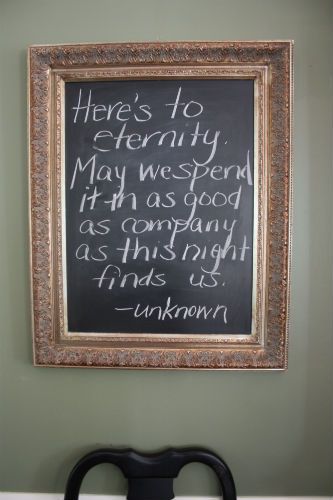 Here's to
eternity.
May we spend
it in as good
as company
as this night
finds us.
-unknown